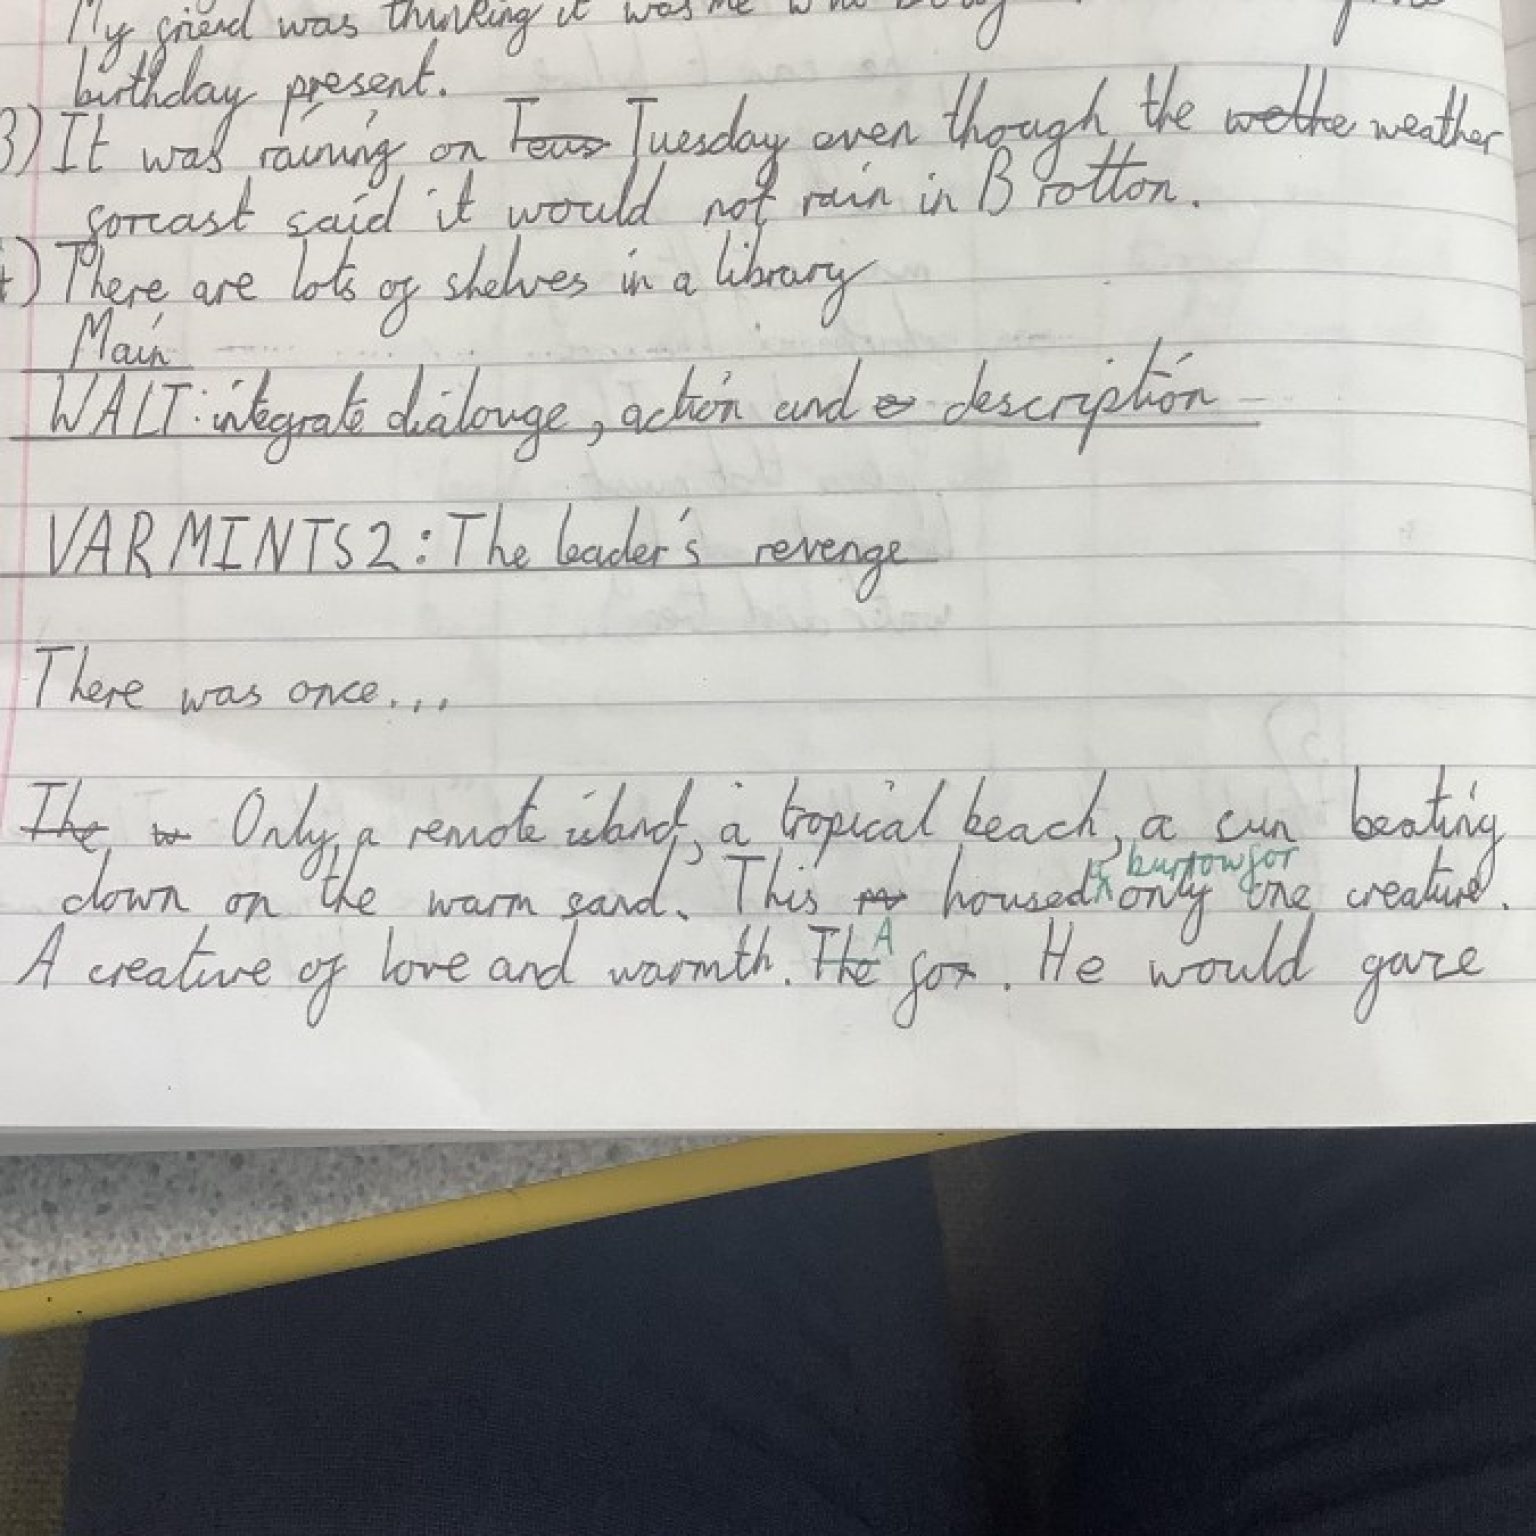 My friend was thinking it was me who
birthday present.
3) It was raining on Teus Tuesday even though the wethe weather
forcast said it would not rain in Brotton.
4) There are lots of shelves in a library
Main
WALT: integrate dialouge, action and description
VARMINTS 2: The leader's revenge
There was once...
The w Only, a remote island, a tropical beach, a sun beating
burrow for
down on the warm sand. This housed only one creature.
A
A creature of love and warmth. The fox. He would gaze